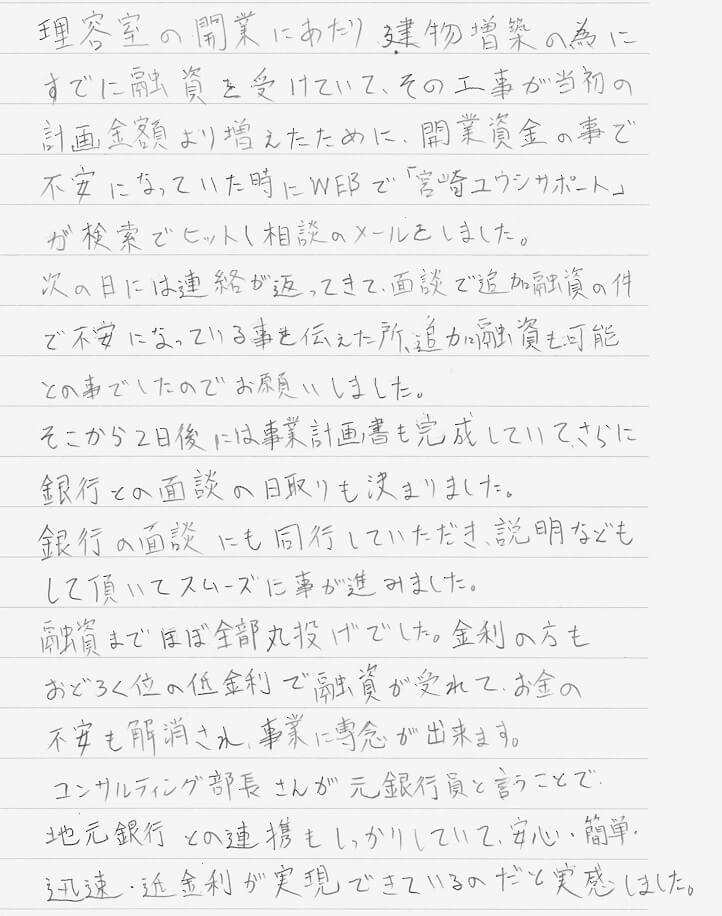 理容室の開業にあたり建物増築の為に
すでに融資を受けていて、その工事が当初の
計画金額より増えたために、開業資金の事で
不安になっていた時にWEBで「宮崎ユウシサポート」
が検索でヒットし相談のメールをしました。
次の日には連絡が返ってきて、面談で追加融資の件
で不安になっている事を伝えた所、追加融資も可能
との事でしたのでお願いしました。
そこから2日後には事業計画書も完成していて、さらに
銀行との面談の日取りも決まりました。
銀行の面談にも同行していただき、説明なども
して頂いてスムーズに事が進みました。
融資までほぼ全部丸投げでした。金利の方も
おどろく位の低金利で融資が受れて、お金の
不安も解消され、事業に専念が出来ます。
コンサルティング部長さんが元銀行員と言うことで、
地元銀行との連携もしっかりしていて、安心・簡単・
迅速・近金利が実現できているのだと実感しました。